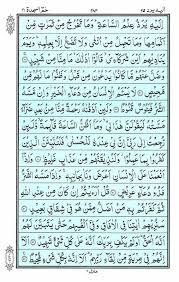 اليه يرد ٢٥ حٰمٓ السجدة ٤١
اِلَيْهِ يُرَدُّ عِلْمُ السَّاعَةِ وَمَا تَخْرُجُ مِنْ ثَمَرٰتٍ مِّنْ
اَكْمَامِهَا وَمَا تَحْمِلُ مِنْ اُنْثٰى وَلَا تَضَعُ اِلَّا بِعِلْمِهٖ وَيَوْمَ
يُنَادِيْهِمْ اَيْنَ شُرَكَآءِيْ قَالُوْٓا اٰذَنّٰكَ مَا مِنَّا مِنْ شَهِيْدٍ
وَضَلَّ عَنْهُمْ مَّا كَانُوْا يَدْعُوْنَ مِنْ قَبْلُ وَظَنُّوْا مَا لَهُمْ مِّنْ
مَّحِيْصٍ لَا يَسْـَٔمُ الْاِنْسَانُ مِنْ دُعَآءِ الْخَيْرِ وَاِنْ مَّسَّهُ الشَّرُّ
فَيَـُٔوْسٌ قَنُوْطٌ وَلَئِنْ اَذَقْنٰهُ رَحْمَةً مِّنَّا مِنْ بَعْدِ ضَرَّآءَ مَسَّتْهُ
لَيَقُوْلَنَّ هٰذَا لِيْ وَمَآ اَظُنُّ السَّاعَةَ قَآئِمَةً وَّلَئِنْ رُّجِعْتُ اِلٰى
رَبِّيْٓ اِنَّ لِيْ عِنْدَهٗ لَلْحُسْنٰى فَلَنُنَبِّئَنَّ الَّذِيْنَ كَفَرُوْا بِمَا عَمِلُوْا
وَلَنُذِيْقَنَّهُمْ مِّنْ عَذَابٍ غَلِيْظٍ وَاِذَآ اَنْعَمْنَا عَلَى
الْاِنْسَانِ اَعْرَضَ وَنَاٰ بِجَانِبِهٖ وَاِذَا مَسَّهُ الشَّرُّ
فَذُوْ دُعَآءٍ عَرِيْضٍ قُلْ اَرَءَيْتُمْ اِنْ كَانَ مِنْ عِنْدِ اللّٰهِ
ثُمَّ كَفَرْتُمْ بِهٖ مَنْ اَضَلُّ مِمَّنْ هُوَ فِيْ شِقَاقٍ بَعِيْدٍ
سَنُرِيْهِمْ اٰيٰتِنَا فِي الْاٰفَاقِ وَفِيْٓ اَنْفُسِهِمْ حَتّٰى يَتَبَيَّنَ لَهُمْ
اَنَّهُ الْحَقُّ اَوَلَمْ يَكْفِ بِرَبِّكَ اَنَّهٗ عَلٰى كُلِّ شَيْءٍ شَهِيْدٌ
اَلَآ اِنَّهُمْ فِيْ مِرْيَةٍ مِّنْ لِّقَآءِ رَبِّهِمْ اَلَآ اِنَّهٗ بِكُلِّ شَيْءٍ مُّحِيْطٌ